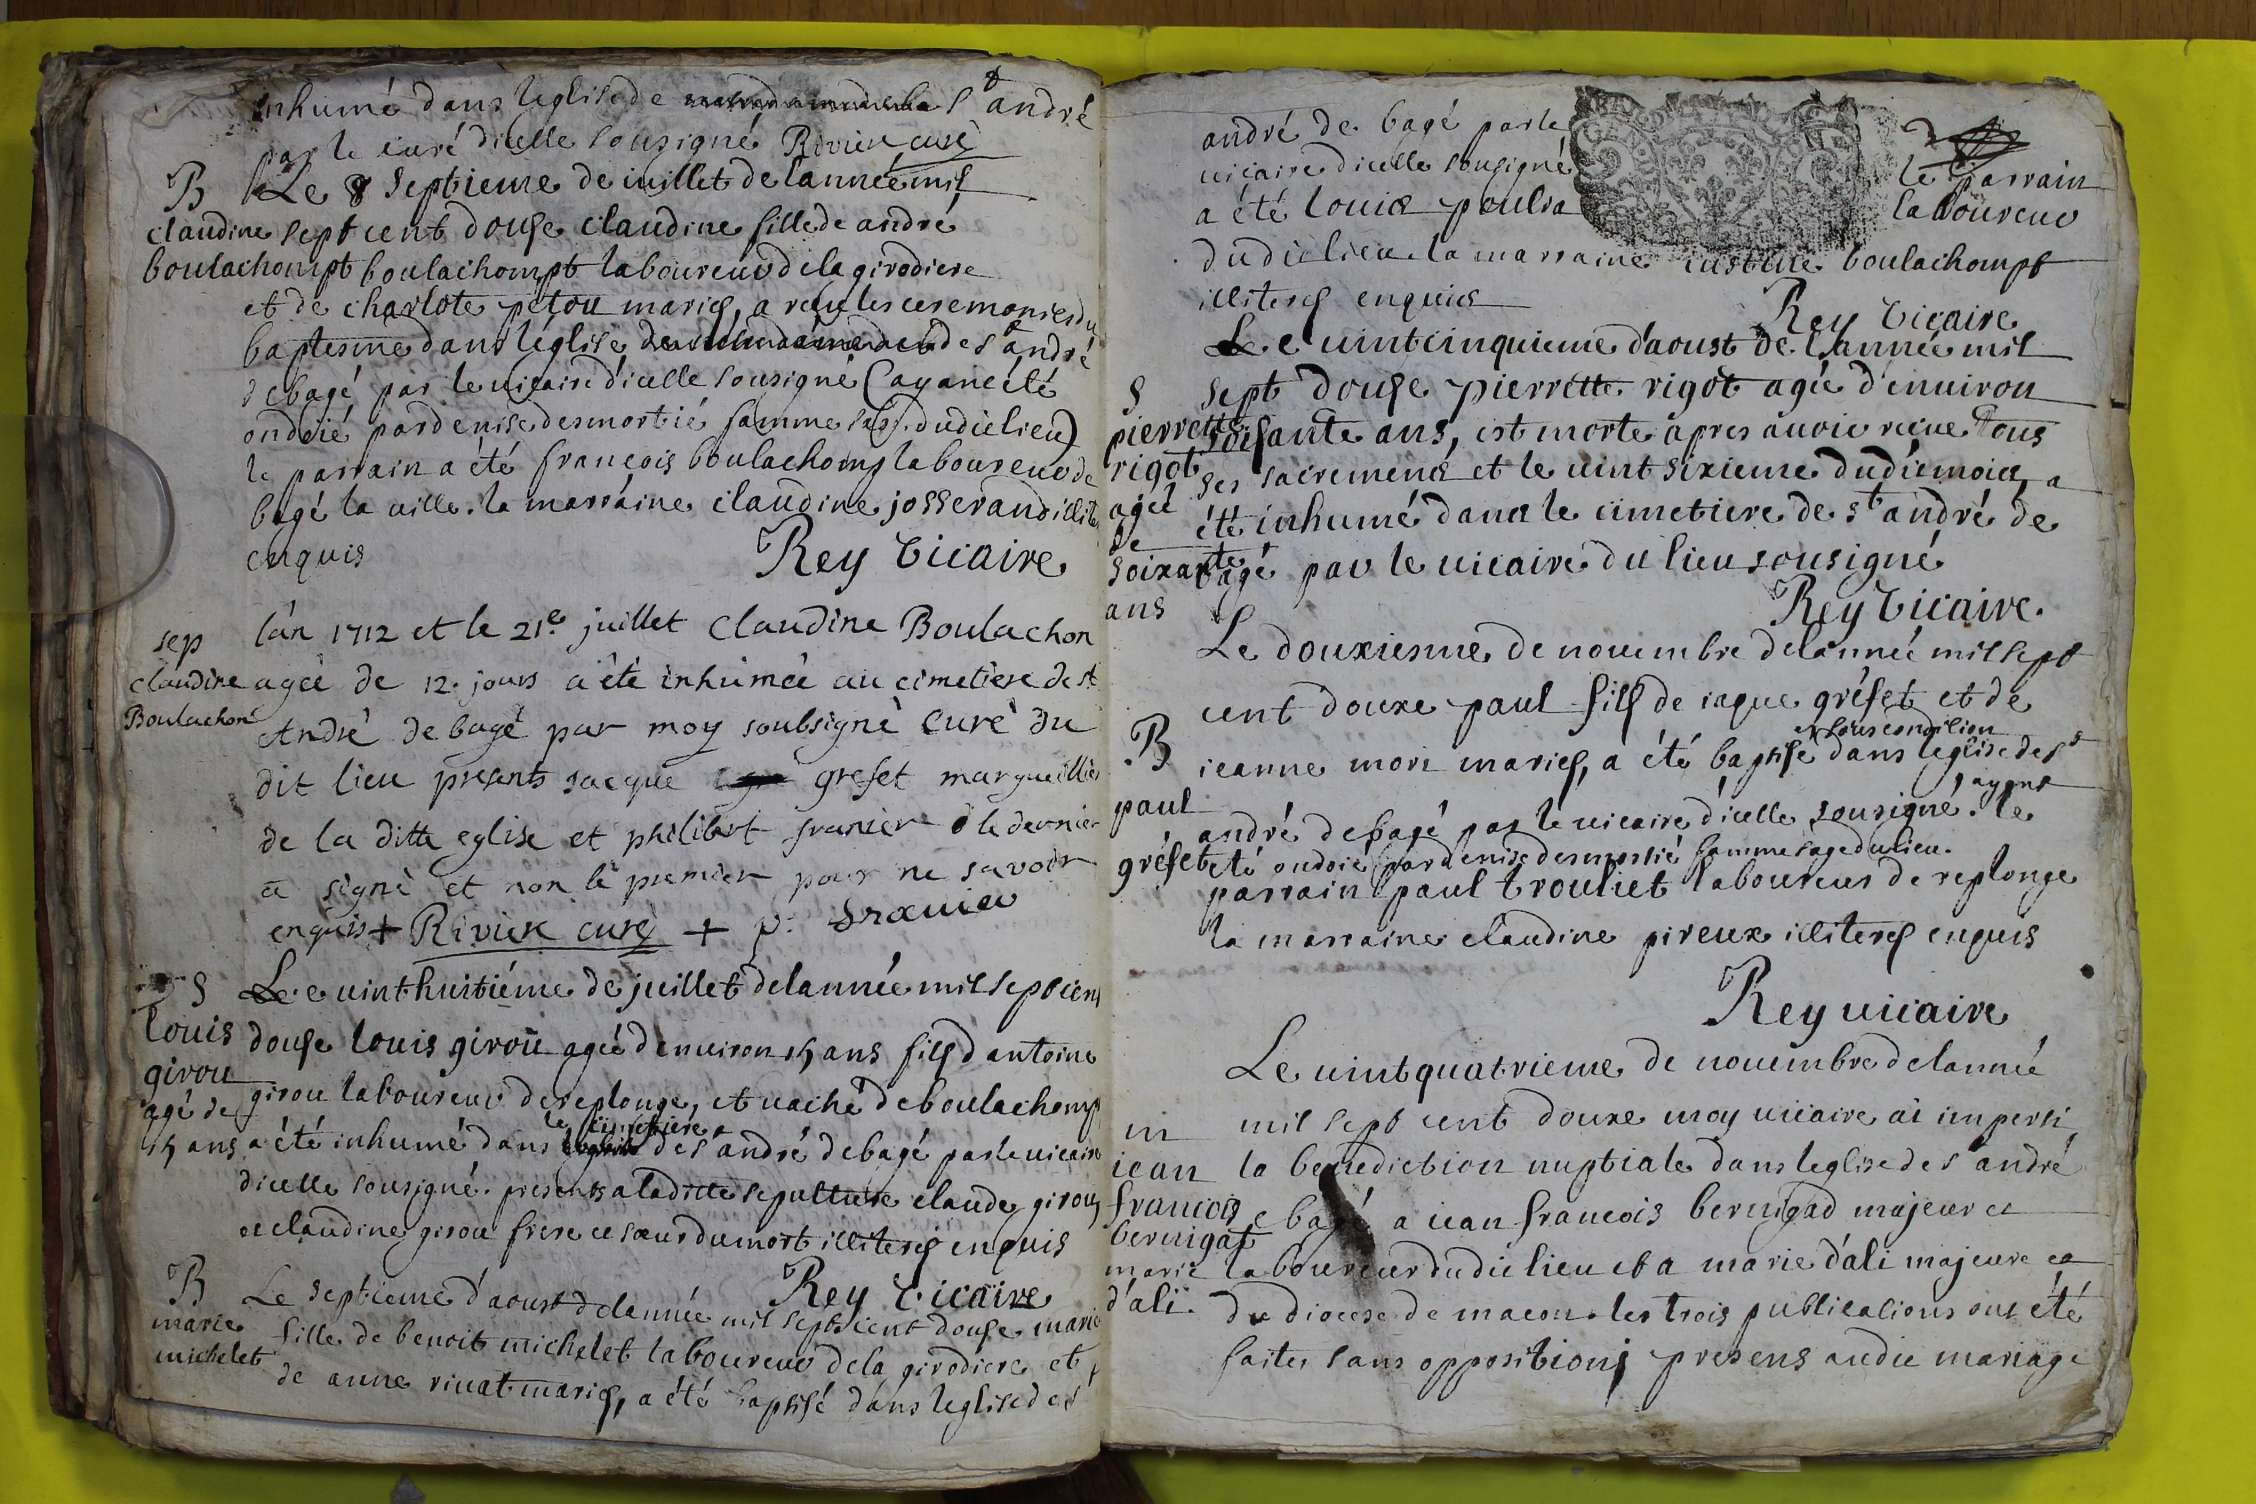 inhumé dans leglise de st andré
par le curé dicelle sousigné Rivier curé
B
Le 8 septieme de iuillet de lannée mil
claudine sept cent douse claudine fille de andré
boulachompt boulachompt laboureur de la girodiere
et de charlote petou mariés, a receu les ceremonies du
baptesme dans léglise de st andré
de bagé par le vicaire d'icelle sousigné (ayant été
ondoié par denise desmortié famme sage dudit lieu)
le parrain a été francois boulachomp laboureur de
bagé la ville. la marraine claudine josserand illite
enquis
Rey Vicaire
sep
claudine
Boulachon
lan 1712 et le 21e juillet Claudine Boulachon
ageé de 12. jours a été inhumée au cimetiere de st
André de bagé par moy soubsigné curé du
dit lieu presents jacque grefet marguillier
de la ditte eglise et philibert franier le dernier
a signé et non le premier pour ne savoir
enquis + Rivier curé + p. franier
S
louis
girou
agé de
15 ans
Le vint huitiéme de juillet de lannée mil sept cent
douse louis girou ageé denviron 15 ans fils d antoine
girou laboureur de replonge, et vaché de boulachomp
a été inhumé dans le cimettiere de st andré de bagé par le vicaire
dicelle sousigné. presents a la ditte sepulture claude girou
et claudine girou frere et soeur du mort illiterés enquis
Rey Vicaire
B
marie
michelet
Le septieme d'aoust de lannée mil sept cent douse marie
fille de benoit michelet laboureur de la girodiere et
de anne rivat mariés, a été baptisé dans leglise de st
andré de bagé par le
vicaire dicelle sousigné le parrain
a été louis poulra laboureur
dudit lieu la marraine boulachompt
illiterés enquis
Rey Vicaire
S
pierrette
rigot
ageé
de
soixante
ans
Le vint cinquieme d'aoust de lannée mil
sept douse pierrette rigot agée d'environ
soisante ans, est morte apres avoir receue tous
ses sacremens et le vint sixieme dudit mois, a
été inhumé dans le cimetiere de st andré de
bagé par le vicaire du lieu sousigné
Rey Vicaire.
B
paul
gréset
Le douxiesme de novembre de lannée mil sept
cent douxe paul fils de iaque gréset et de
ieanne mori mariés, a été baptisé sous condition dans leglise de st
andré de bagé par le vicaire d'icelle sousigné, ayant
eté ondoié par denise desmortié famme sage du lieu. le
parrain paul trouliet laboureur de replonge
la marraine claudine pireux illiterés enquis
Rey vicaire
m
iean
francois
bernigat
marie
d'ali.
Le vint quatrieme de novembre de lannée
mil sept cent douxe moy vicaire ai imperti
la benediction nuptiale dans leglise de st andré
de bagé a iean francois bernigad majeur et
laboureur dudit lieu et a marie d'ali majeure et
du diocese de macon. les trois publications ont été
faites sans opposition; presens audit mariage